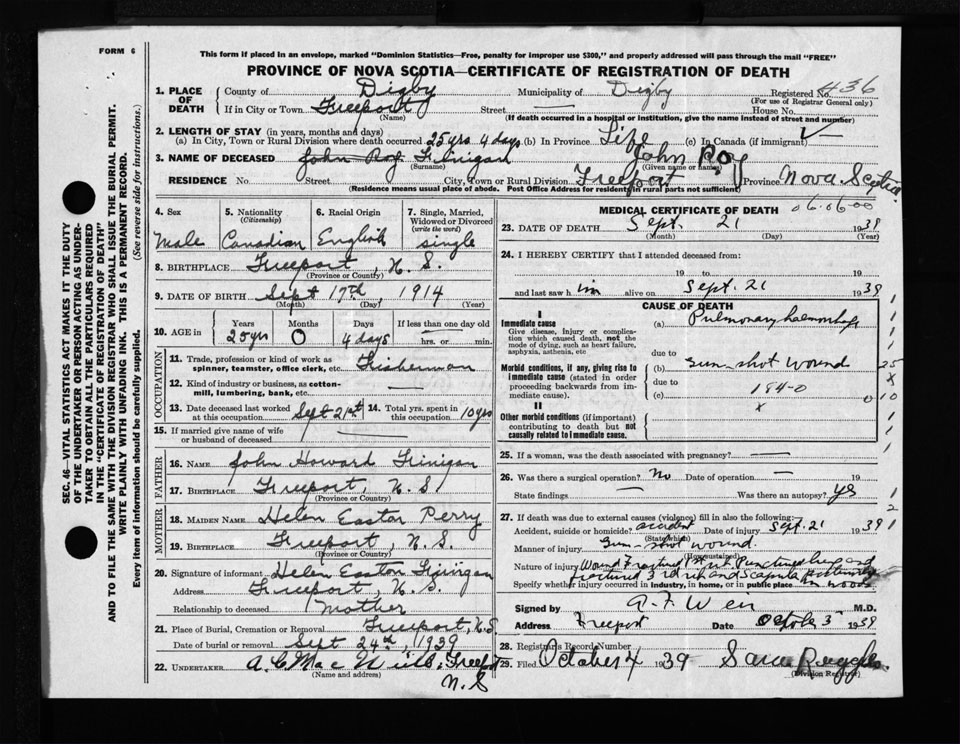 FORM 6
This form if placed in an envelope, marked "Dominion Statistics—Free, penalty for improper use $300," and properly addressed will pass through the mail "FREE"
PROVINCE OF NOVA SCOTIA—CERTIFICATE OF REGISTRATION OF DEATH
1. PLACE OF DEATH
County of Digby Municipality of Digby Registered No. 436
(For use of Registrar General only)
If in City or Town Freeport Street — House No.
(Name) (If death occurred in a hospital or institution, give the name instead of street and number)
2. LENGTH OF STAY (in years, months and days)
(a) In City, Town or Rural Division where death occurred 25 yrs 4 days (b) In Province Life (c) In Canada (if immigrant) —
3. NAME OF DECEASED John Roy Finigan John Roy
(Surname) (Given name or names)
RESIDENCE No. Street City, Town or Rural Division Freeport Province Nova Scotia
(Residence means usual place of abode. Post Office Address for residents in rural parts not sufficient)
06.06.00
4. Sex Male
5. Nationality (Citizenship) Canadian
6. Racial Origin English
7. Single, Married, Widowed or Divorced (write the word) single
8. BIRTHPLACE Freeport, N.S.
(Province or Country)
9. DATE OF BIRTH Sept 17th, 1914
(Month) (Day) (Year)
10. AGE in Years 25 yrs Months 0 Days 4 days If less than one day old hrs. or min.
OCCUPATION
11. Trade, profession or kind of work as spinner, teamster, office clerk, etc. Fisherman
12. Kind of industry or business, as cotton-mill, lumbering, bank, etc. —
13. Date deceased last worked at this occupation Sept 21st 14. Total yrs. spent in this occupation 10 yrs
15. If married give name of wife or husband of deceased —
FATHER
16. NAME John Howard Finigan
17. BIRTHPLACE Freeport, N.S.
(Province or Country)
MOTHER
18. MAIDEN NAME Helen Easton Perry
19. BIRTHPLACE Freeport, N.S.
(Province or Country)
20. Signature of informant Helen Easton Finigan
Address Freeport, N.S.
Relationship to deceased Mother
21. Place of Burial, Cremation or Removal Freeport, N.S.
Date of burial or removal Sept 24th, 1939
22. UNDERTAKER A. C. Mac Freeport
(Name and address)
N.S
MEDICAL CERTIFICATE OF DEATH
23. DATE OF DEATH Sept. 21 1939
(Month) (Day) (Year)
24. I HEREBY CERTIFY that I attended deceased from:
19 to 19
and last saw him alive on Sept. 21 1939
CAUSE OF DEATH
I
Immediate cause
Give disease, injury or complication which caused death, not the mode of dying, such as heart failure, asphyxia, asthenia, etc
(a) Pulmonary haemorrhage
due to
Morbid conditions, if any, giving rise to immediate cause (stated in order proceeding backwards from immediate cause).
(b) Gun-shot wound
due to
(c) 184-0
II
Other morbid conditions (if important) contributing to death but not causally related to immediate cause.
x
25. If a woman, was the death associated with pregnancy? —
26. Was there a surgical operation? No Date of operation —
State findings — Was there an autopsy? yes
27. If death was due to external causes (violence) fill in also the following:
Accident, suicide or homicide? accident Date of injury Sept. 21 1939
(State which)
Manner of injury Gun-shot wound
(How sustained)
Nature of injury Wound Fractured Punctured lung and
fractured 3rd rib and scapula
Specify whether injury occurred in industry, in home, or in public place in woods
Signed by A. F. Weir M.D.
Address Freeport Date Octobe 3 1939
28. Registrar's Record Number
29. Filed October 4 1939 Sara Ruggles
(Division Registrar)
SEC. 46—VITAL STATISTICS ACT MAKES IT THE DUTY
OF THE UNDERTAKER OR PERSON ACTING AS UNDER-
TAKER TO OBTAIN ALL THE PARTICULARS REQUIRED
IN THE "CERTIFICATE OF REGISTRATION OF DEATH"
AND TO FILE THE SAME WITH THE DIVISION REGISTRAR WHO SHALL ISSUE THE BURIAL PERMIT.
WRITE PLAINLY WITH UNFADING INK. THIS IS A PERMANENT RECORD.
Every item of information should be carefully supplied. (See reverse side for instructions.)